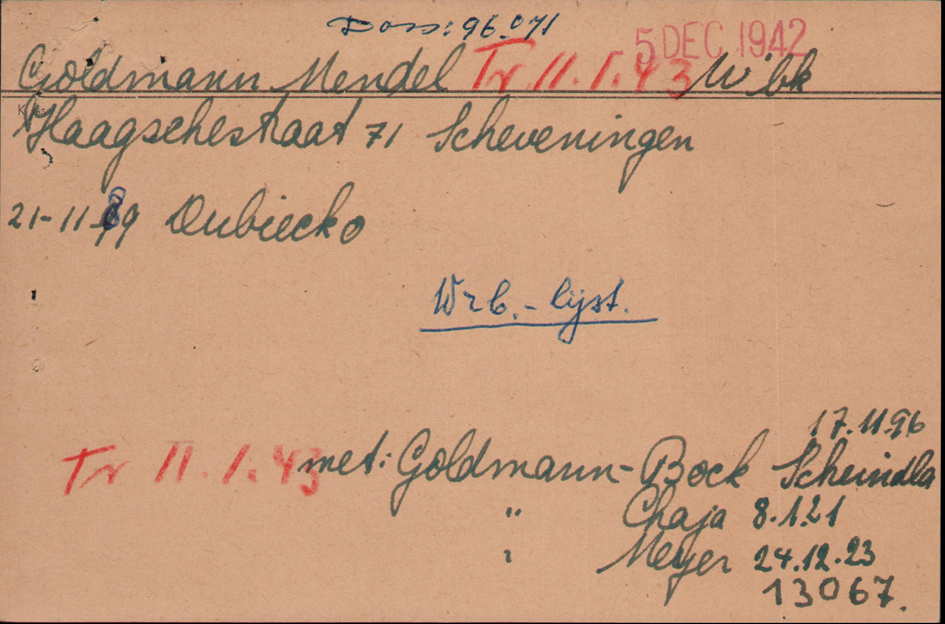 Doss: 96.071
5 DEC 1942
Goldmann Mendel Tr 11.1.43 W'bk
Haagschestraat 71 Scheveningen
21-11-89 Dubiecko
W r b. - lijst.
17.11.96
Tr 11.1.43 met: Goldmann-Bock Scheindla
" Chaja 8.1.21
" Meyer 24.12.23
13067.